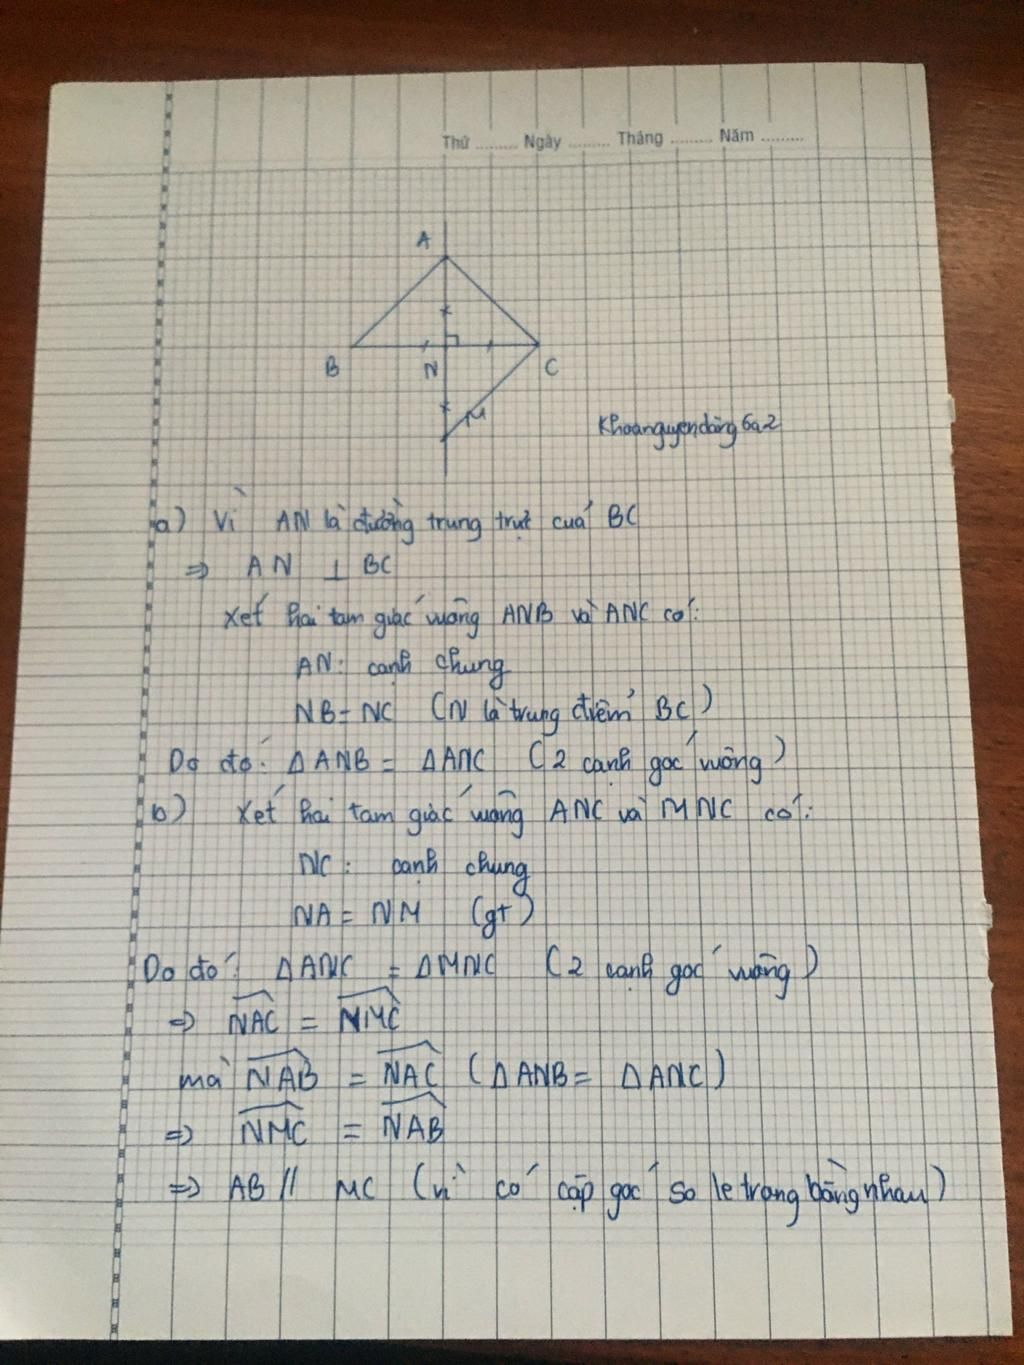 Thứ ......... Ngày ......... Tháng ......... Năm .........
A
B
N
C
M
Khoanguyendăng6a2
a) Vì AN là đường trung trực của BC
⇒ AN ⊥ BC
Xét hai tam giác vuông ANB và ANC có:
AN: cạnh chung
NB = NC (N là trung điểm BC)
Do đó: ΔANB = ΔANC (2 cạnh góc vuông)
b) Xét hai tam giác vuông ANC và MNC có:
NC: cạnh chung
NA = NM (gt)
Do đó: ΔANC = ΔMNC (2 cạnh góc vuông)
⇒ \widehat{NAC} = \widehat{NMC}
mà \widehat{NAB} = \widehat{NAC} (ΔANB = ΔANC)
⇒ \widehat{NMC} = \widehat{NAB}
⇒ AB // MC (vì có cặp góc so le trong bằng nhau)